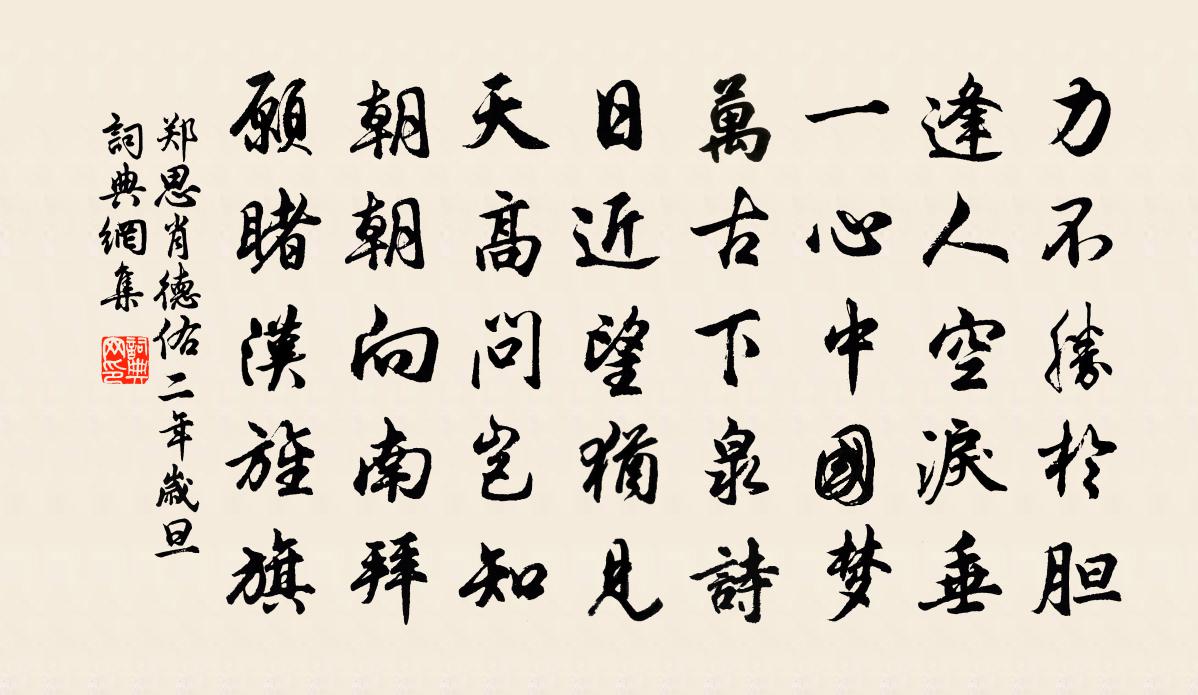 力不勝於胆
逢人空淚垂
一心中國梦
萬古下泉詩
日近望猶見
天高問岂知
朝朝向南拜
願睹漢旌旗
郑思肖德佑二年歲旦
詞典網集
詞典网印